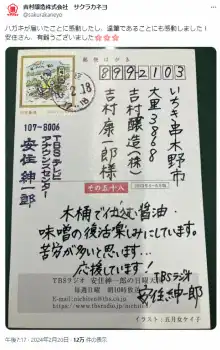 吉村醸造株式会社 サクラカネヨ
@sakurakaneyo
ハガキが届いたことに感動したし、達筆であることにも感動しました！
安住さん、有難うございました🌸🌸🌸
郵便はがき
8992103
2.18
いちき串木野市
大里3868
吉村醸造(株)
吉村康一郎様
107-8006
TBSテレビ
アナウンスセンター
安住紳一郎
その五十八
木桶で仕込む醤油・
味噌の復活楽しみにしています。
苦労が多いと思います…
応援しています！
TBSラジオ
安住紳一郎
TBSラジオ 安住紳一郎の日曜天国
毎週日曜 朝10時放送
イラスト：五月女ケイ子
午後7:17・2024年2月20日・12万 件の表示